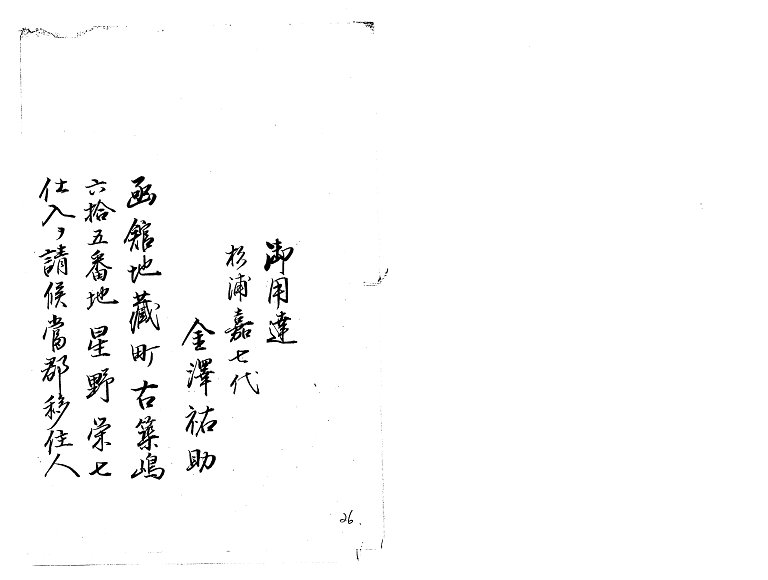 御用達
杉浦嘉七代
金澤祐助
函館地蔵町古築嶋
六拾五番地星野栄七
仕入ヲ請候當郡移住人
26